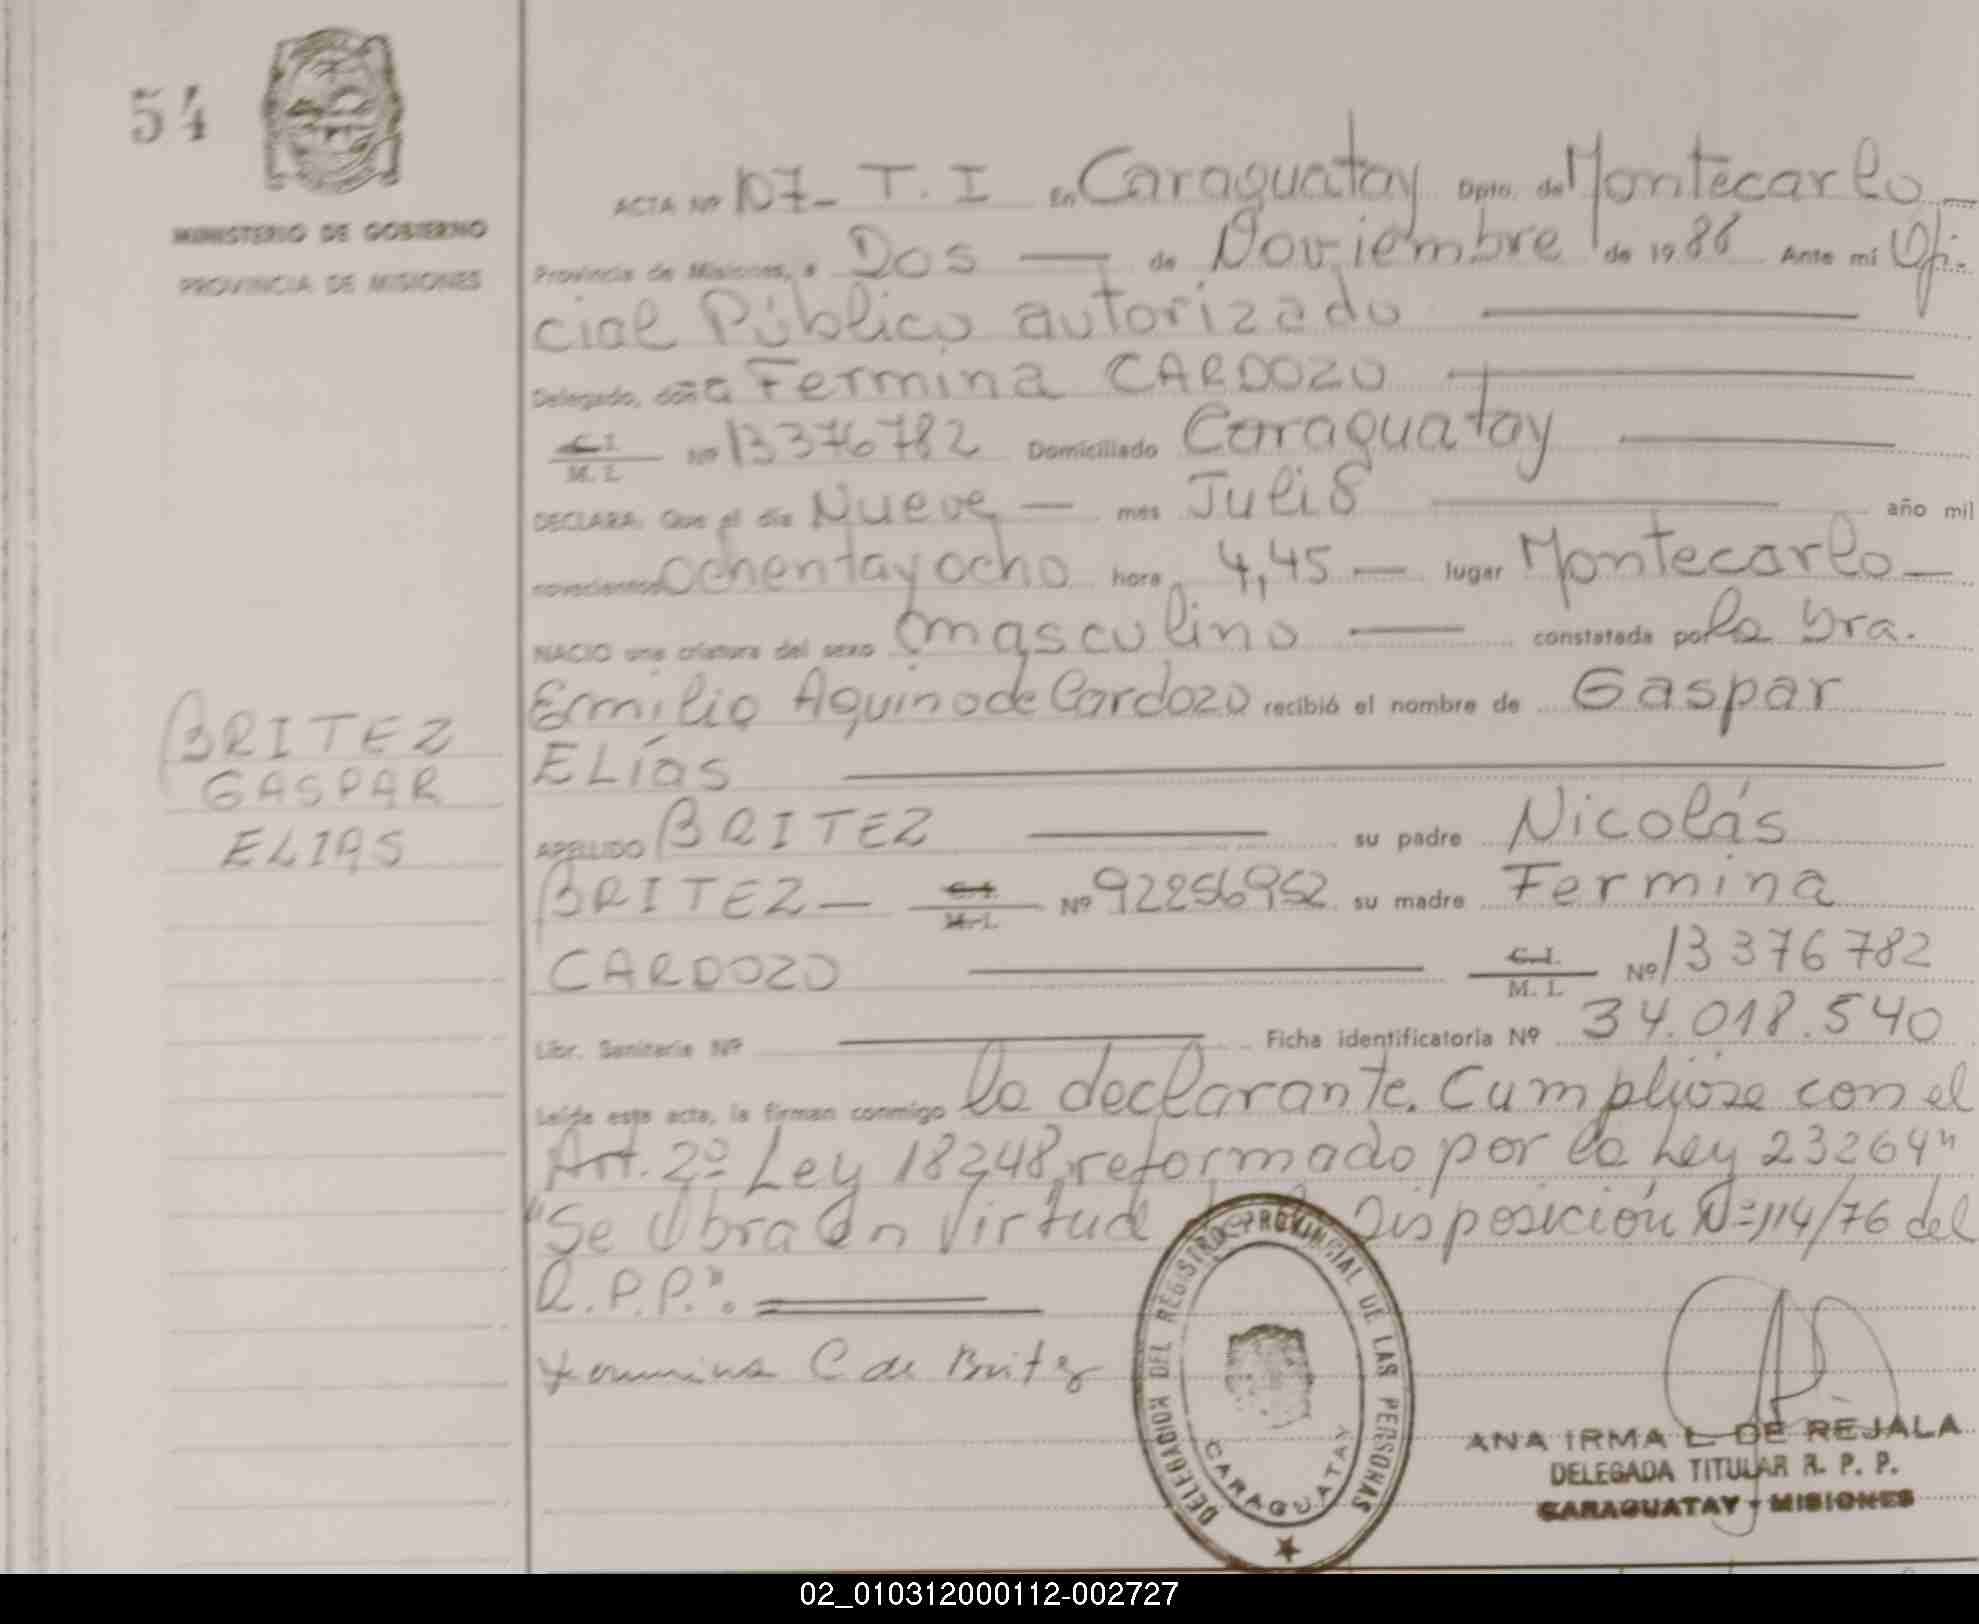 54
MINISTERIO DE GOBIERNO
PROVINCIA DE MISIONES
ACTA Nº 107_ T. I En Caraguatay Dpto. de Montecarlo
Provincia de Misiones, a Dos de Noviembre de 1988 Ante mi Ofi-
cial Público autorizado
Delegado, doña Fermina CARDOZO
C.I.
M. I. Nº 13376782 Domiciliado Caraguatay
DECLARA: Que el día Nueve mes Julio año mil
novecientos ochentayocho hora 4,45 lugar Montecarlo
NACIO una criatura del sexo masculino constatada por la Dra.
Emilia Aquino de Cardozo recibió el nombre de Gaspar
ELías
APELLIDO BRITEZ su padre Nicolás
BRITEZ C.I. M.I. Nº 92256952 su madre Fermina
CARDOZO C.I. M. I. Nº 13376782
Libr. Sanitaria Nº Ficha identificatoria Nº 34.018.540
Leída esta acta, la firman conmigo la declarante. Cumplióse con el
Art. 2º Ley 18248, reformado por la Ley 23264"
"Se Obra en Virtud Disposición Nº 114/76 del
R.P.P.".
Fermina C de Britez
BRITEZ
GASPAR
ELIAS
DELEGACION DEL REGISTRO PROVINCIAL DE LAS PERSONAS
CARAGUATAY
ANA IRMA L DE REJALA
DELEGADA TITULAR R. P. P.
CARAGUATAY - MISIONES
02_010312000112-002727